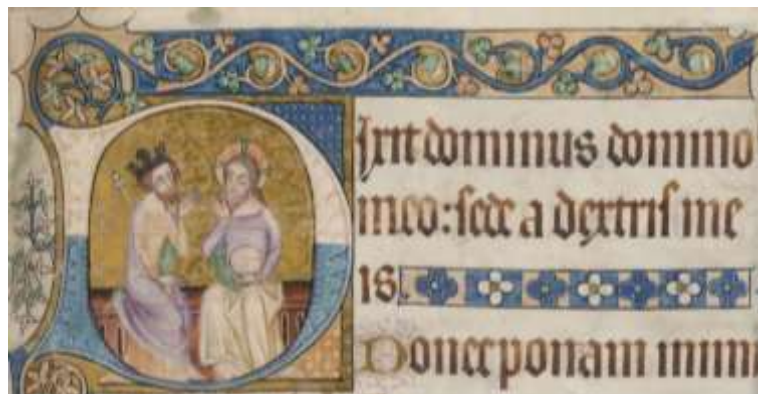 Dixit dominus domino
meo: sede a dextris me
is
Donec ponam inimi